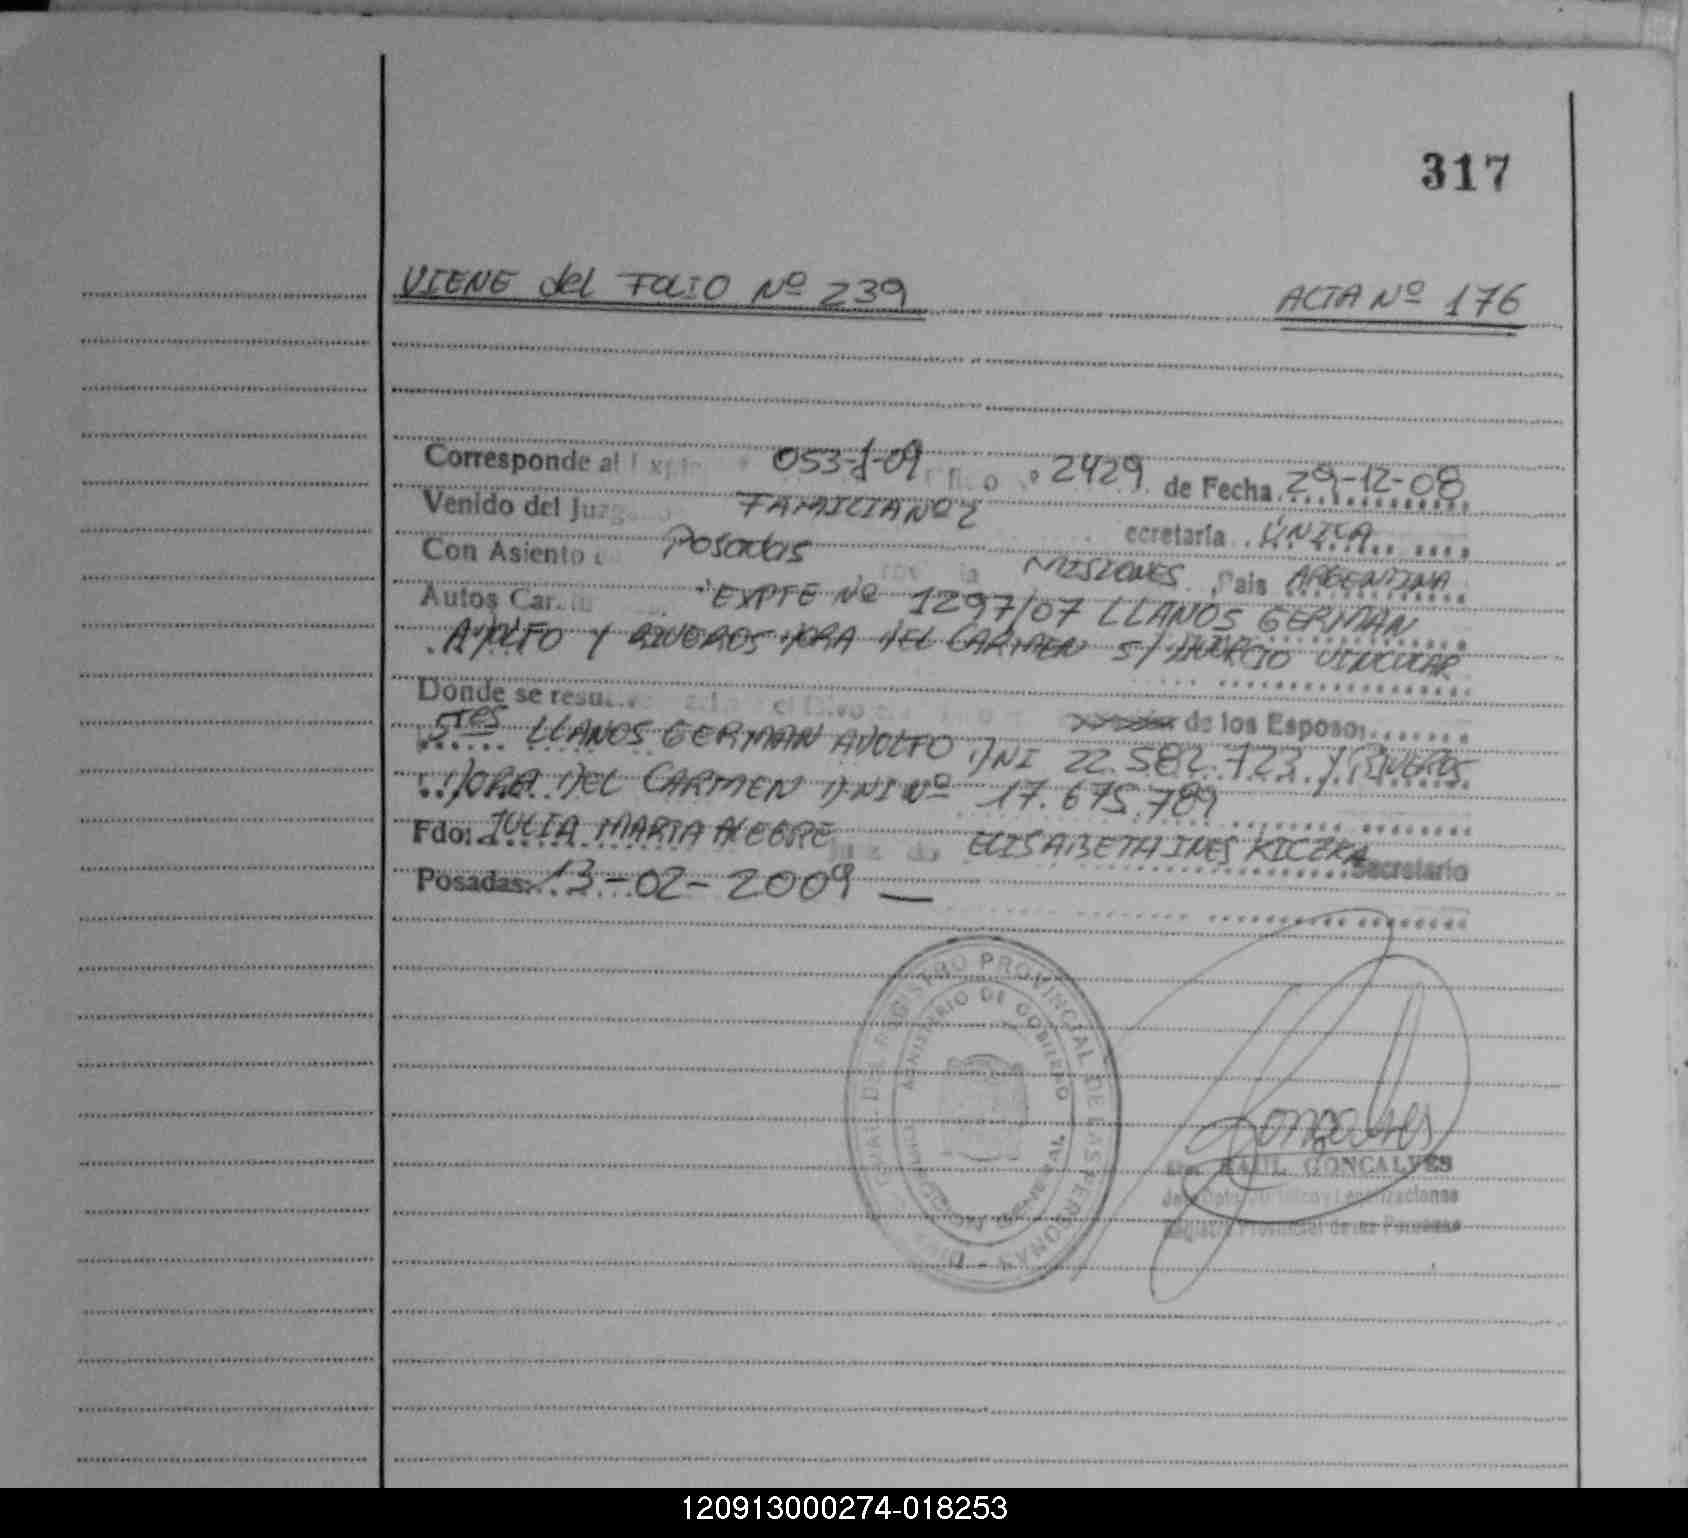 317
VIENE del FOLIO Nº 239 ACTA Nº 176
Corresponde al 053-J-09 2429 de Fecha 29-12-08
Venido del Juzg FAMILIA Nº 2 ecretaria UNICA
Con Asiento Posadas MISIONES Pais ARGENTINA
Autos Car EXPTE Nº 1297/07 LLANOS GERMAN
ADOLFO Y RIVEROS DORA DEL CARMEN S/ DIVORCIO VINCULAR
Donde se resu de los Esposos
Stes LLANOS GERMAN ADOLFO DNI 22.582.723 Y RIVEROS
DORA DEL CARMEN DNI Nº 17.675.789
Fdo: JULIA MARTA ALEGRE Juez do ELISABETH INES KICZKA Secretario
Posadas: 13-02-2009
REGISTRO PROVINCIAL DE LAS PERSONAS
MINISTERIO DE GOBIERNO
Goncalves
RAUL GONCALVES
Registro Provincial de las Personas
120913000274-018253